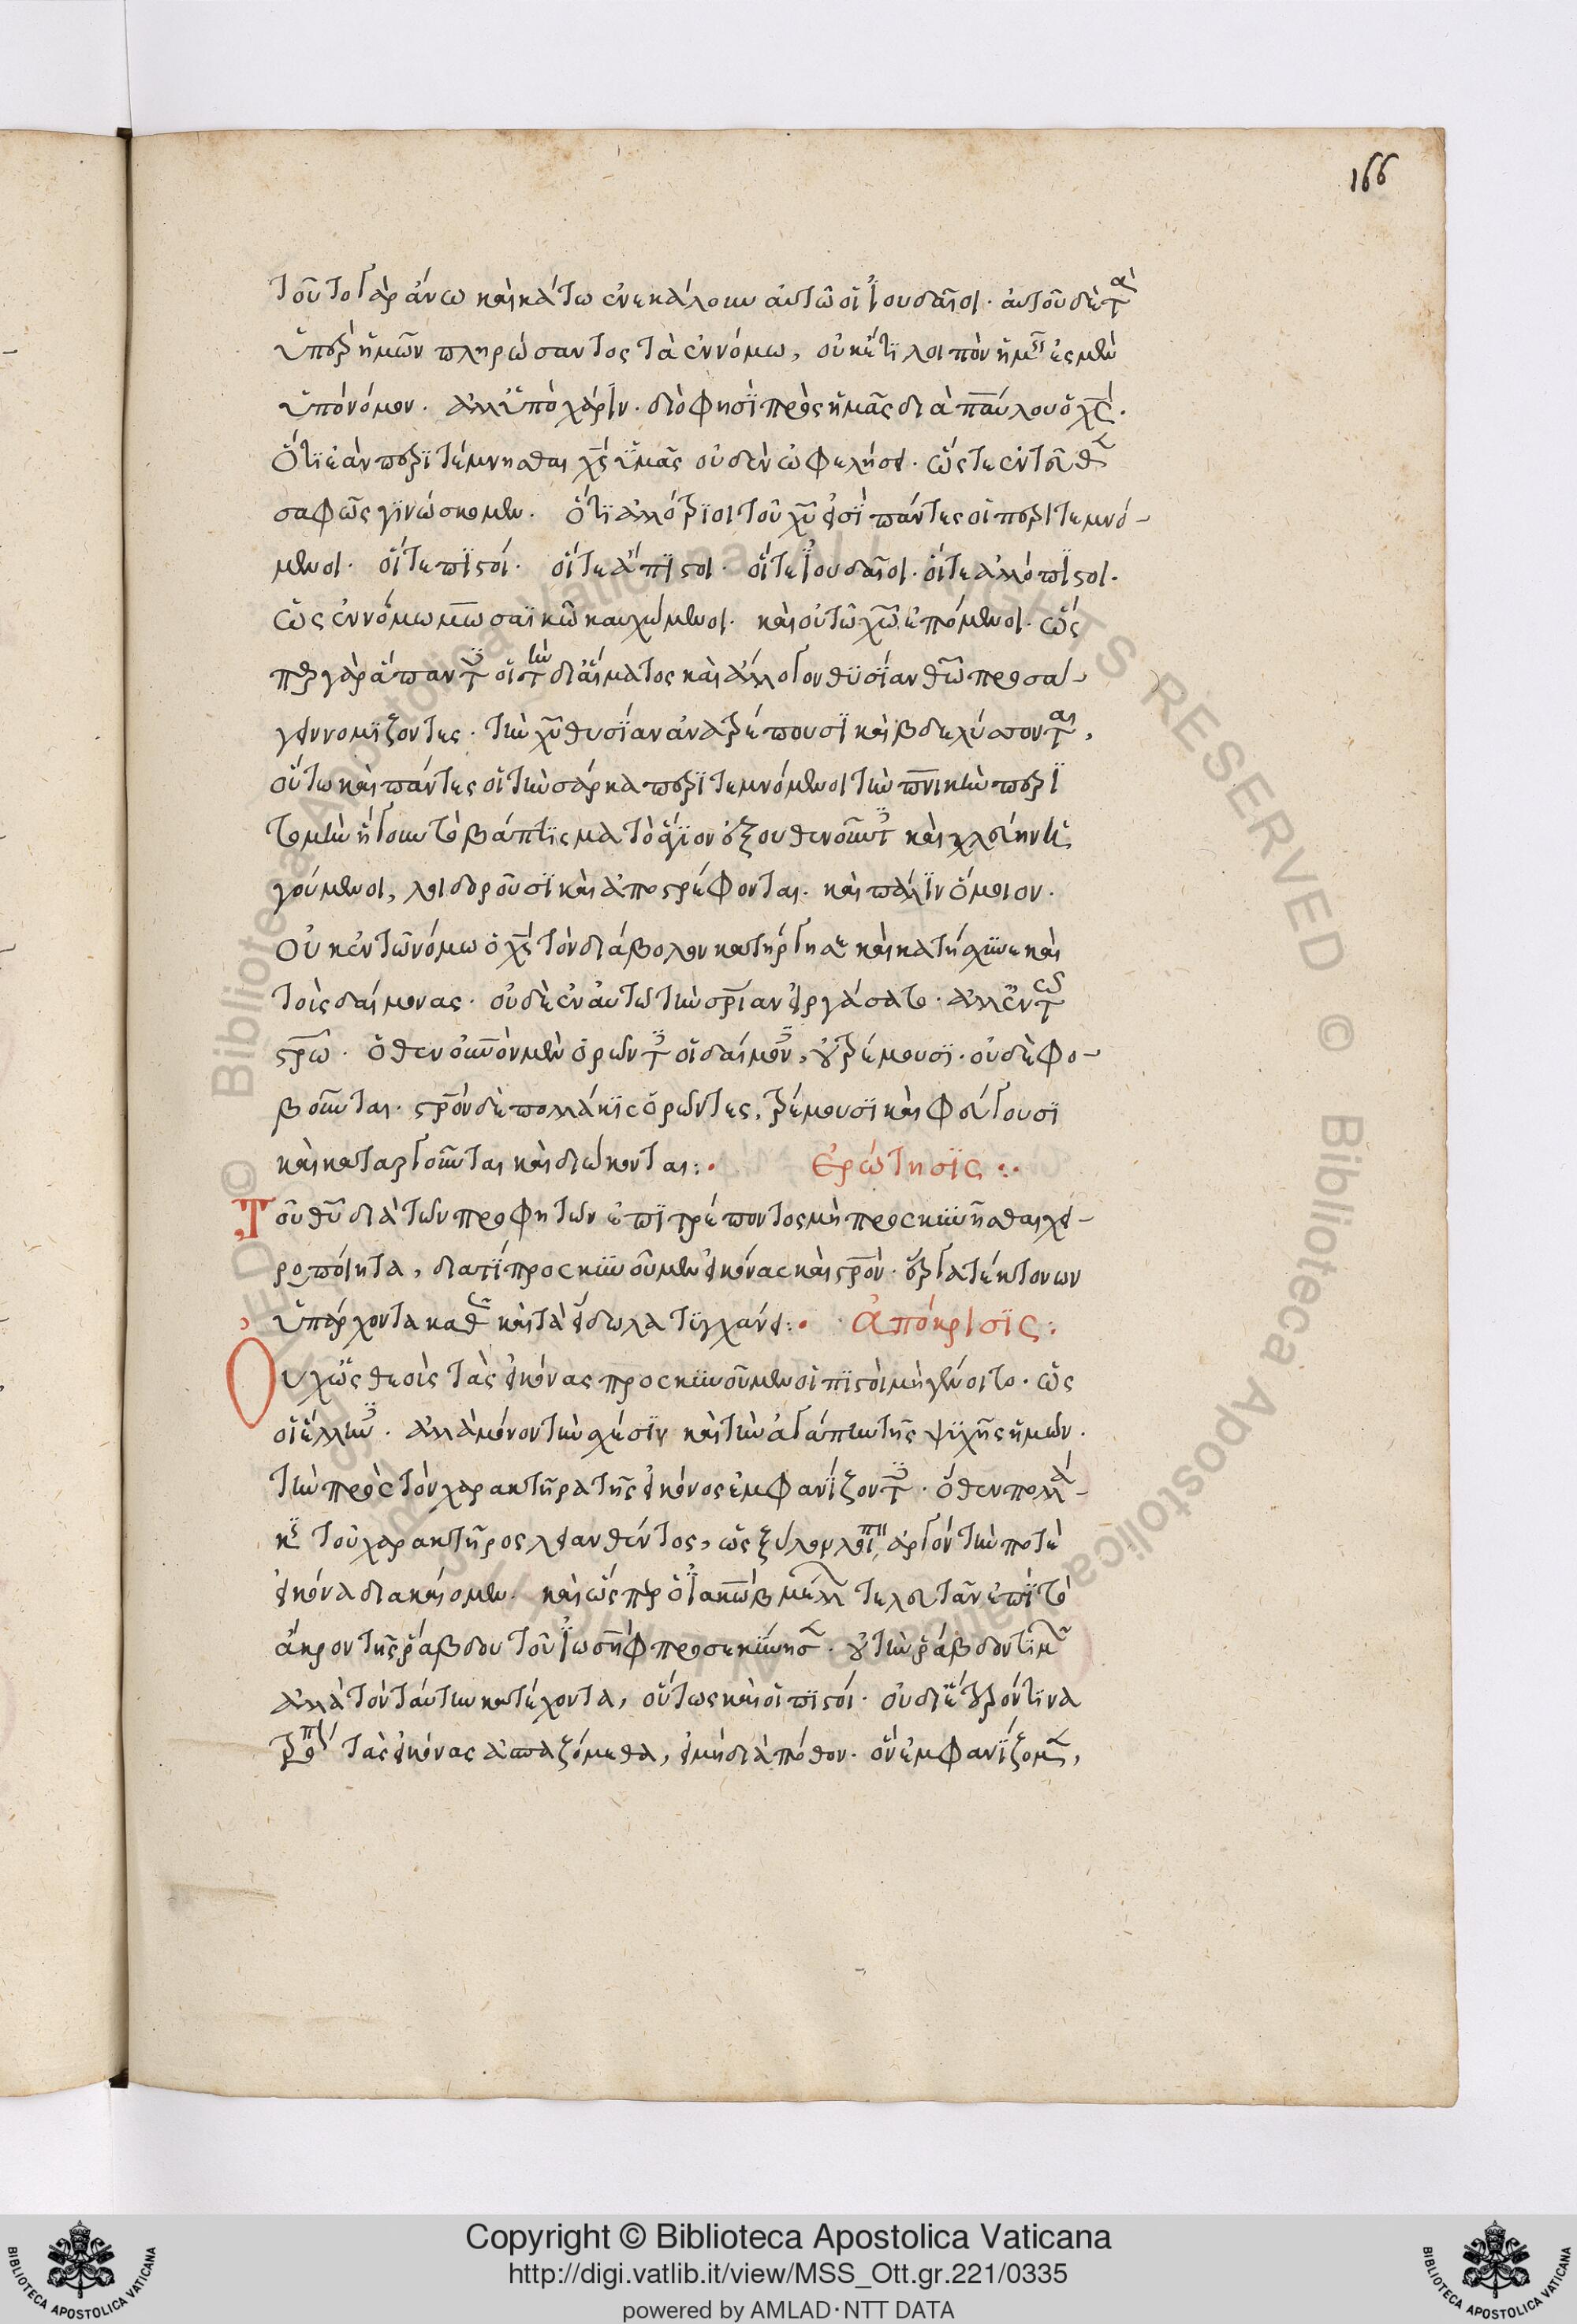 166
Τοῦτο γὰρ ἄνω καὶ κάτω ἐνεκάλουν αὐτῶ οἱ Ἰουδαῖοι· αὐτοῦ δὲ τὰ
ὑπὲρ ἡμῶν πληρώσαντος τὰ ἐν νόμω, οὐκέτι λοιπὸν ἡμεῖς ἐσμὲν
ὑπὸ νόμον· ἀλλ' ὑπὸ χάριν· διὸ φησὶ πρὸς ἡμᾶς διὰ παύλου ὁ χς·
ὅτι ἐὰν περιτέμνησθαι χς ὑμᾶς οὐδὲν ὠφελήσει· ὥστε ἐντεῦθεν
σαφῶς γινώσκομεν· ὅτι ἀλλότριοι τοῦ χυ εἰσὶ πάντες οἱ περιτεμνό-
μενοι· εἴτε πιστοί· εἴτε ἄπιστοι· εἴτε Ἰουδαῖοι· εἴτε ἀλλόπιστοι·
ὡς ἐν νόμω μωσαϊκῶ καυχώμενοι· καὶ οὐ τῶ χω ἑπόμενοι· ὥς
περ γὰρ ἅπαντες οἱ τὴν δι' αἵματος καὶ ἄλογον θυσίαν θω προσά-
γειν νομίζοντες· τὴν χυ θυσίαν ἀνατρέπουσι καὶ βδελύσσονται,
οὕτω καὶ πάντες οἱ τὴν σάρκα περιτεμνόμενοι τὴν πνικὴν περι
τομὴν ἤγουν τὸ βάπτισμα τὸ ἅγιον ἐξουθενοῦντες καὶ χλεύην ἡ
γούμενοι, λοιδοροῦσι καὶ ἀποστρέφονται· καὶ πάλιν ὅμοιον·
Οὐκ ἐν τῶ νόμω ὁ χς τὸν διάβολον κατήργησε καὶ κατήσχυνε καὶ
τοὺς δαίμονας· οὐδὲ ἐν αὐτῶ τὴν σριαν εἰργάσατο· ἀλλ' ἐν τῶ
στρω· ὅθεν ἐκεῖνον μὲν ὁρῶντες οἱ δαίμονες, οὐ τρέμουσι· οὐδὲ φο-
βοῦνται· στρὸν δὲ πολλάκις ὁρῶντες, τρέμουσι καὶ φεύγουσι
καὶ καταργοῦνται καὶ διώκονται:· Ἐρώτησις:·
Τοῦ θυ διὰ τῶν προφητῶν ἐπιτρέποντος μὴ προσκυνῆσθαι χει-
ροποίητα, διατί προσκυνοῦμεν εἰκόνας καὶ στρόν· ἔργα τεκτόνων
ὑπάρχοντα καθὼς καὶ τὰ εἴδωλα τυγχάνει:· Ἀπόκρισις:
Οὐχ ὡς θεοὺς τὰς εἰκόνας προσκυνοῦμεν οἱ πιστοὶ μὴ γένοιτο· ὡς
οἱ ἕλληνες· ἀλλὰ μόνον τὴν σχέσιν καὶ τὴν ἀγάπην τῆς ψυχῆς ἡμῶν·
τὴν πρὸς τὸν χαρακτῆρα τῆς εἰκόνος ἐμφανίζοντες· ὅθεν πολλά-
κις τοῦ χαρακτῆρος λειανθέντος, ὡς ξύλον λοιπὸν ἀργὸν τὴν ποτὲ
εἰκόνα διακαίομεν· καὶ ὥσπερ ὁ Ἰακωβ μέλλων τελευτᾶν ἐπὶ τὸ
ἄκρον τῆς ράβδου τοῦ Ἰωσηφ προσεκύνησεν· οὐ τὴν ράβδον τιμῶν
ἀλλὰ τὸν ταύτην κατέχοντα, οὕτως καὶ οἱ πιστοί· οὐ δι' ἕτερόν τινα
τρόπον τὰς εἰκόνας ἀσπαζόμεθα, εἰ μὴ διὰ πόθον· ὃν ἐμφανίζομεν,
Copyright © Biblioteca Apostolica Vaticana
http://digi.vatlib.it/view/MSS_Ott.gr.221/0335
powered by AMLAD·NTT DATA